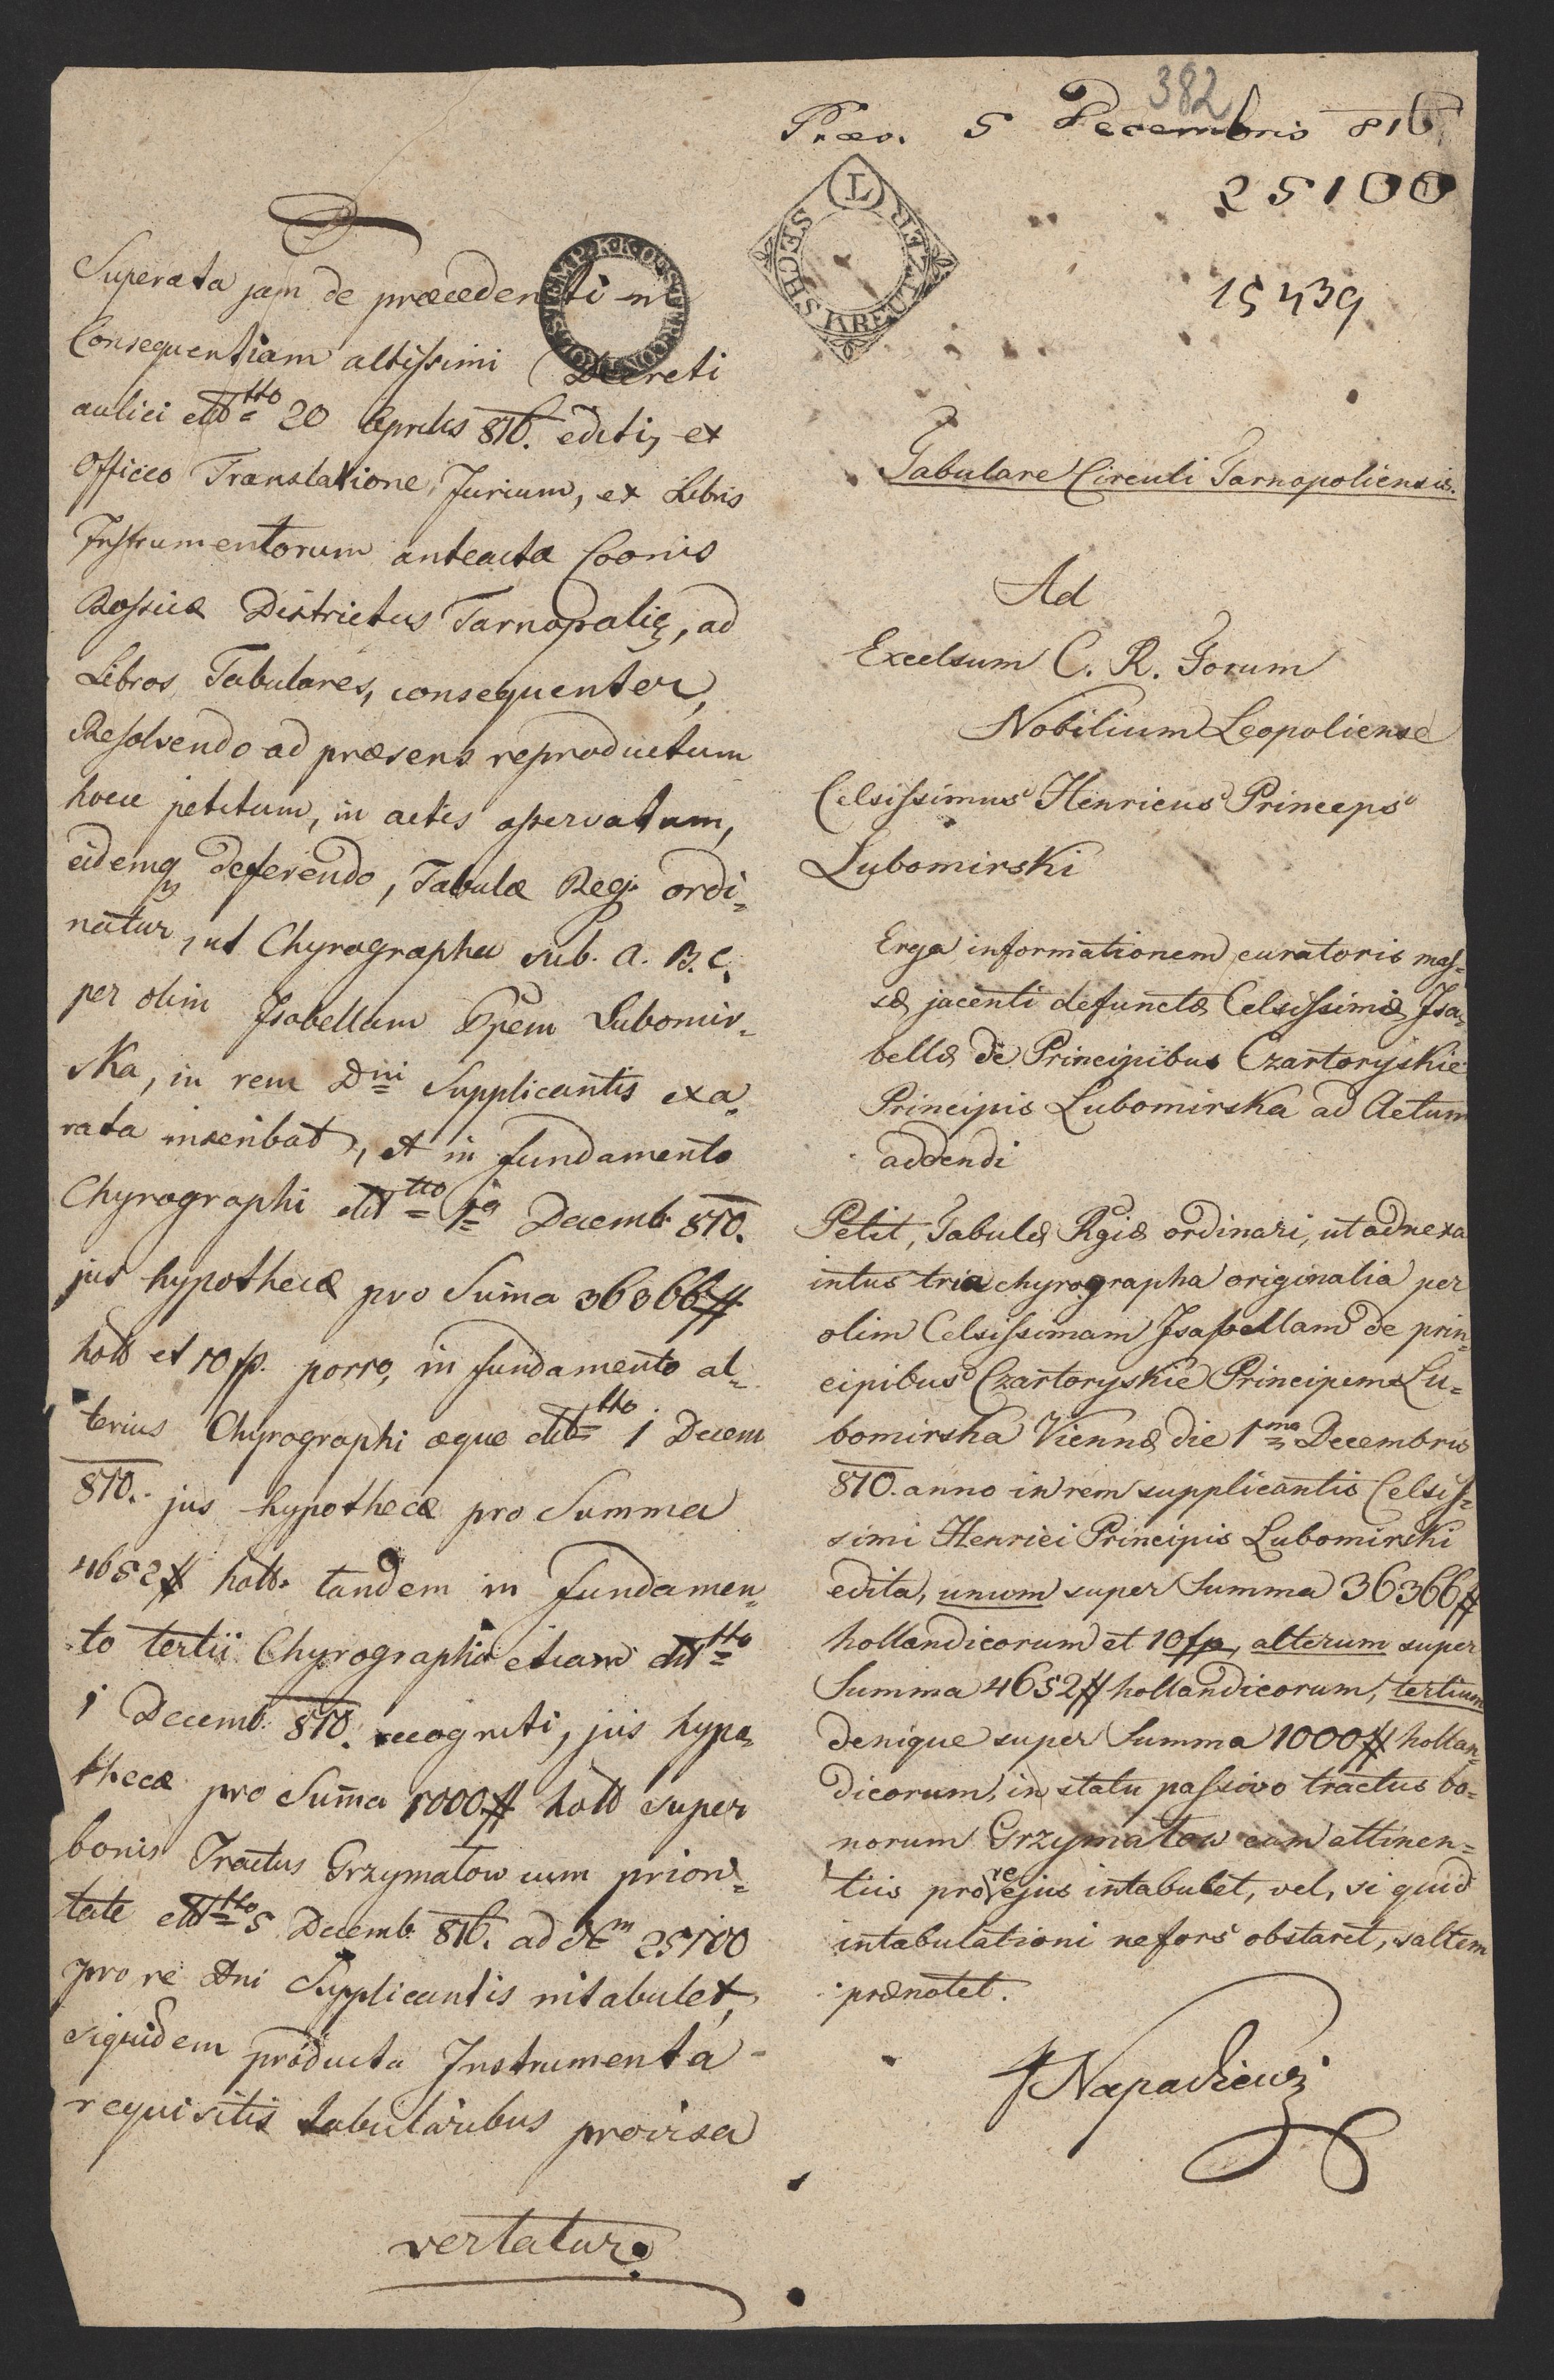 382
Præs. 5 Decembris 816
25100
15439
SECHS KREUTZER
Tabulare Circuli Tarnopoliensis.
Ad
Excelsum C. R. Forum
Nobilium Leopoliense
Celsissimus Henricus Princeps
Lubomirski
Erga informationem curatoris mas=
sæ jacenti defunctæ Celsissimæ Isa=
bellæ de Principibus Czartoryskie
Principis Lubomirska ad Actum
addendi
Petit, Tabulæ Rgiæ ordinari, ut adnexa
intus tria chyrographa originalia per
olim Celsissimam Isabellam de prin=
cipibus Czartoryskie Principem Lu=
bomirska Viennæ die 1ma Decembris
810. anno in rem supplicantis Celsis=
simi Henrici Principis Lubomirski
edita, unum super Summa 36366#
hollandicorum et 10 fp, alterum super
Summa 4652# hollandicorum, tertium
denique super Summa 1000# hollan=
dicorum, in statu passivo tractus bo=
norum Grzymałow cum attinen=
tiis pro re ejus intabulet, vel, si quid
intabulationi ne fors obstaret, saltem
prænotet.
Superata jam de præcedenti in
Consequentiam altissimi Decreti
aulici ddtto 20 Aprilis 816. editi, ex
Officio Translatione Jurium, ex Libris
Instrumentorum anteactæ Coonis
Rossicæ Districtus Tarnopolis, ad
Libros Tabulares, consequenter,
Resolvendo ad præsens reproductum
hocce petitum, in actis asservatum,
eidemq deferendo, Tabulæ Reg: ordi=
natur, ut Chyrographa sub. A. B. C.
per olim Isabellam Ppem Lubomir=
ska, in rem Dni Supplicantis exa=
rata inscribat, et in fundamento
Chyrographi ddtto 1a Decemb 810.
jus hypothecæ pro Suma 36366#
holl et 10 fp. porro, in fundamento al=
terius Chyrographi æque ddtto 1 Decem
810. jus hypothecæ pro Summa
4652# holl. tandem in fundamen=
to tertii Chyrographi etiam ddtto
1 Decemb. 810. recogniti, jus hypo=
thecæ pro Suma 1000# holl super
bonis Tractus Grzymałow cum priori=
tate ddtto 5 Decemb. 816. ad Nm 25100
pro re Dni Supplicantis intabulet,
siquidem producta Instrumenta
requisitis tabularibus provisa
vertatur.